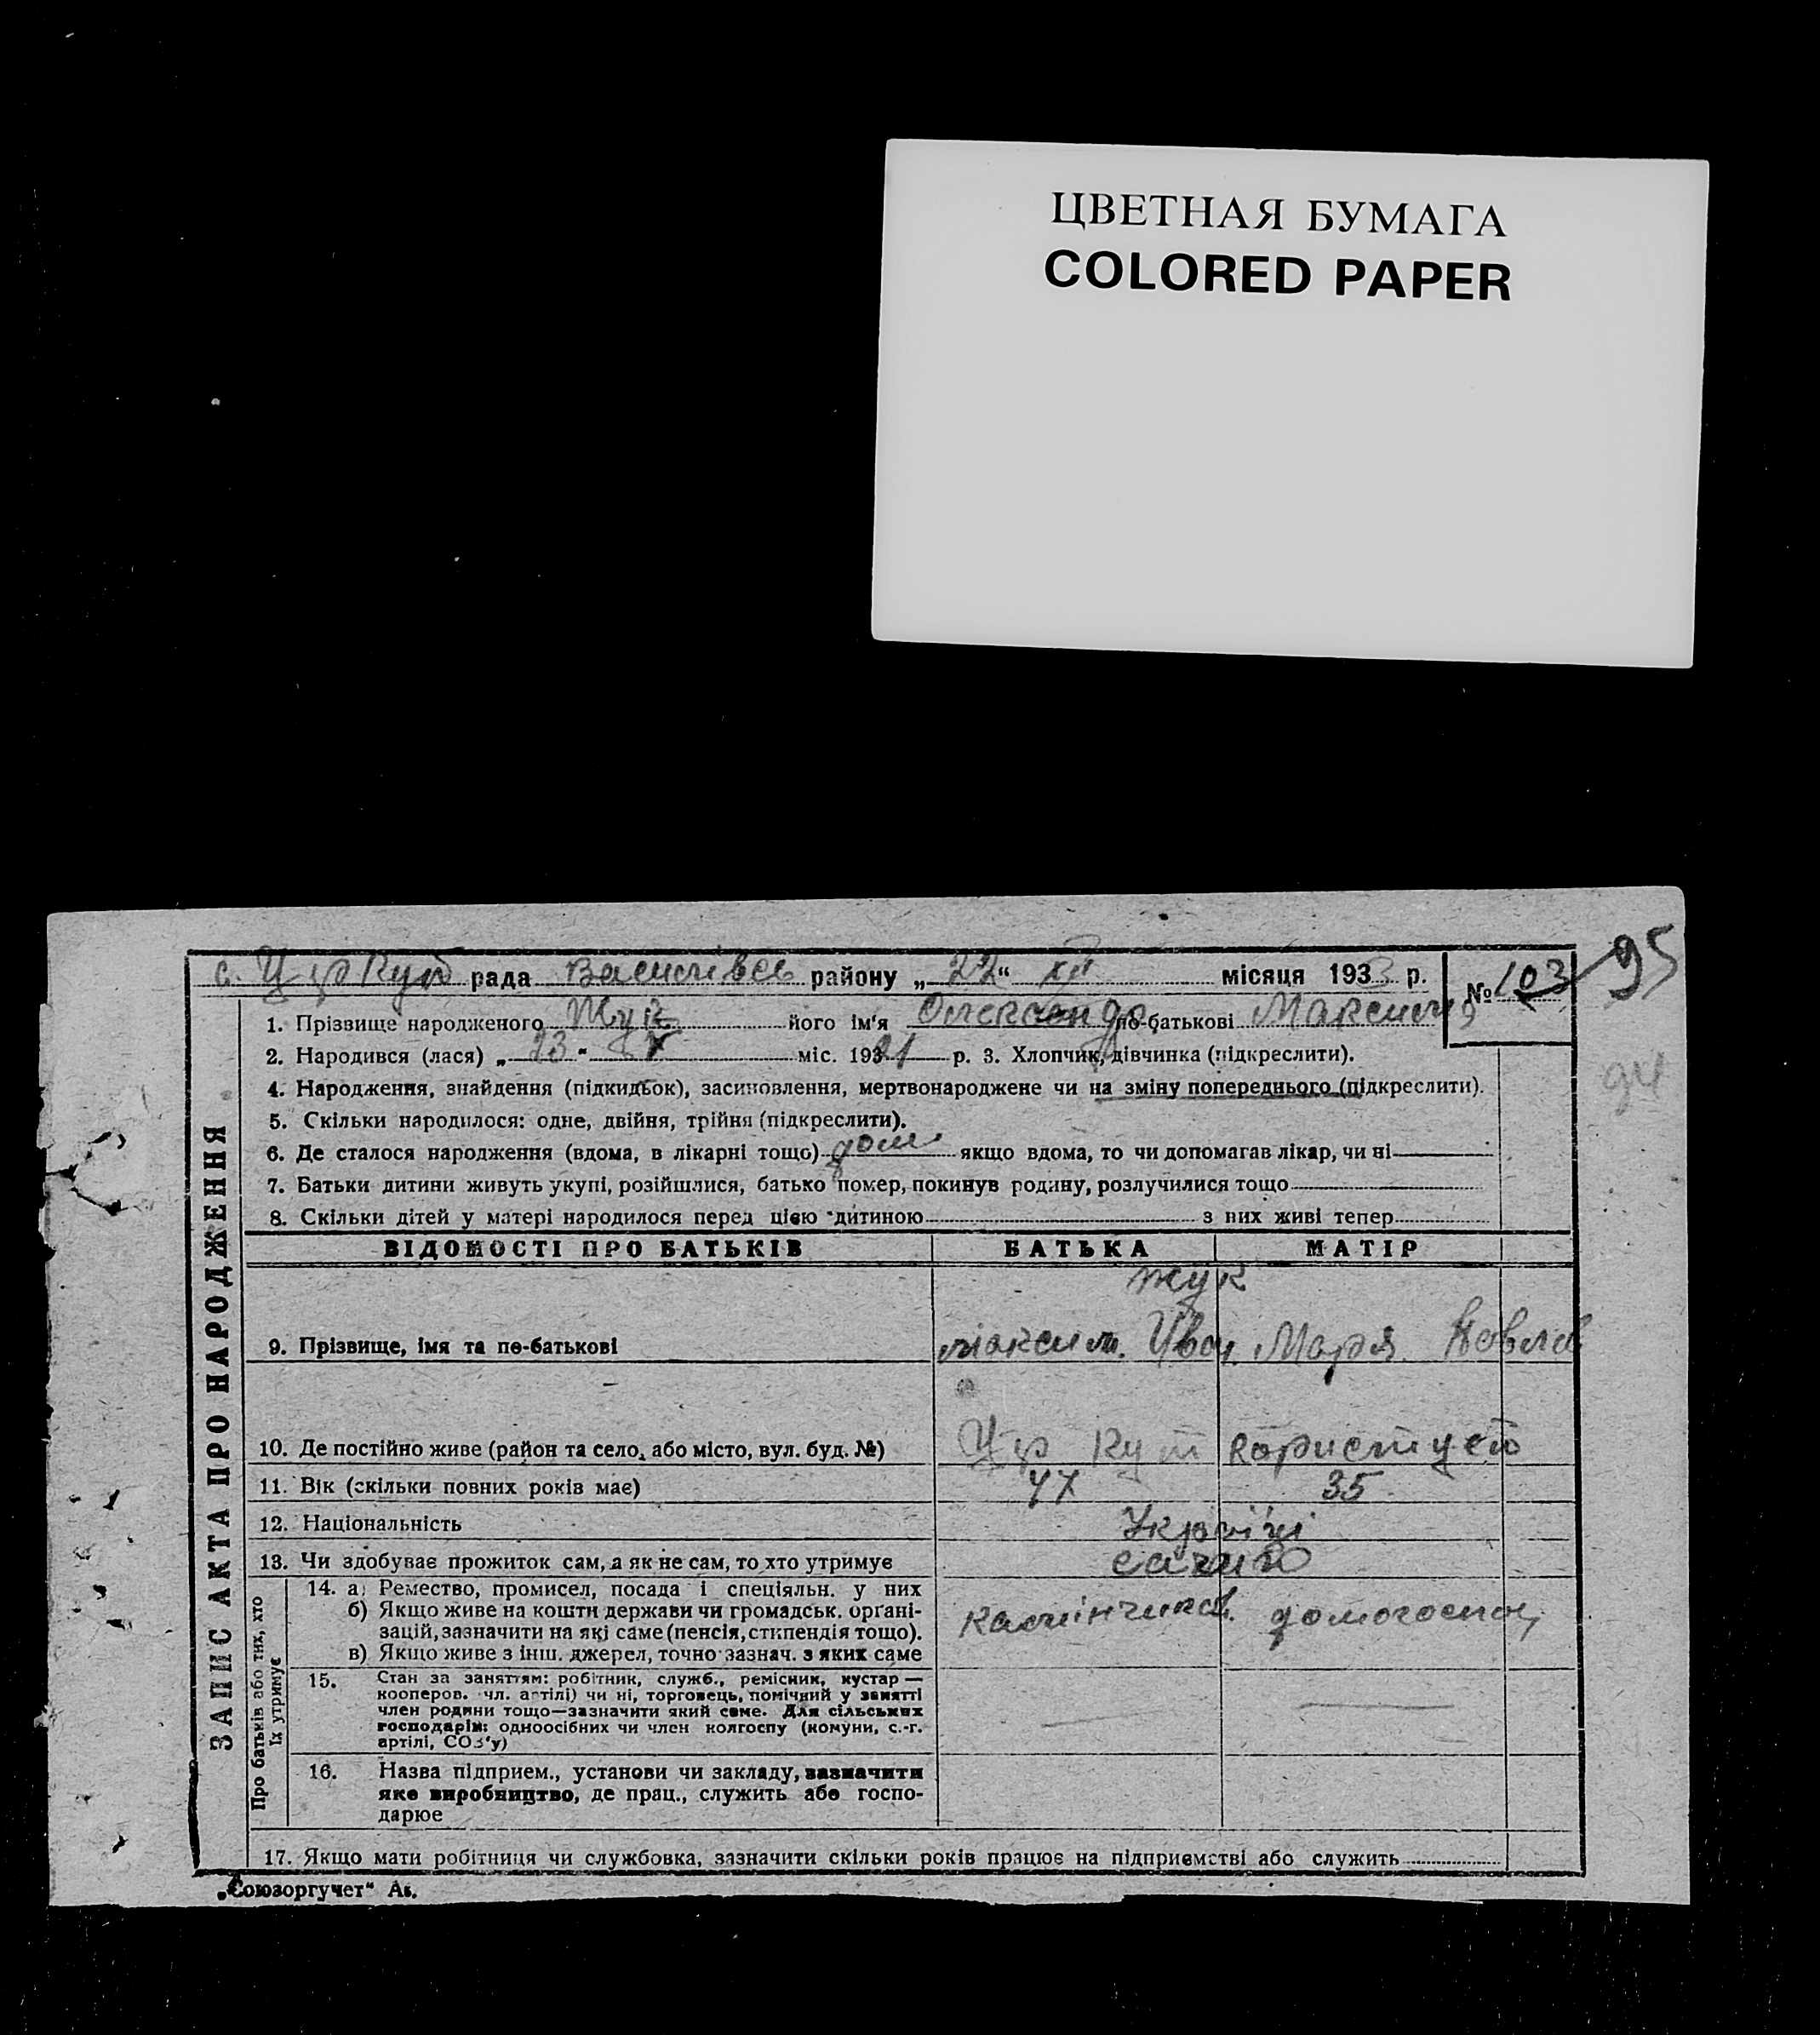 ЦВЕТНАЯ БУМАГА
COLORED PAPER
95
с. рада району „22“ XII місяця 1933 р. № 103
1. Прізвище народженого Жук його ім'я Олександр по-батькові Максимів
2. Народився (лася) „23“ X міс. 193 р. 3. Хлопчик, дівчинка (підкреслити).
94
4. Народження, знайдення (підкидьок), засиновлення, мертвонароджене чи на зміну попереднього (підкреслити).
5. Скільки народилося: одне, двійня, трійня (підкреслити).
6. Де сталося народження (вдома, в лікарні тощо) дом якщо вдома, то чи допомагав лікар, чи ні
7. Батьки дитини живуть укупі, розійшлися, батько помер, покинув родину, розлучилися тощо
8. Скільки дітей у матері народилося перед цією дитиною з них живі тепер
ЗАПИС АКТА ПРО НАРОДЖЕННЯ
ВІДОМОСТІ ПРО БАТЬКІВ БАТЬКА МАТІР
Жук
9. Прізвище, імя та по-батькові Максим. Іван. Марія
10. Де постійно живе (район та село, або місто, вул. буд. №) Кут
11. Вік (скільки повних років має) 47 35
12. Національність
13. Чи здобуває прожиток сам, а як не сам, то хто утримує
Про батьків або тих, хто
їх утримує
14. а) Ремество, промисел, посада і спеціяльн. у них
б) Якщо живе на кошти держави чи громадськ. органі-
зацій, зазначити на які саме (пенсія, стипендія тощо). домогоспод
в) Якщо живе з інш. джерел, точно зазнач. з яких саме
15. Стан за заняттям: робітник, служб., ремісник, кустар —
кооперов. чл. артілі) чи ні, торговець, помічний у занятті
член родини тощо—зазначити який саме. Для сільських
господарів: одноосібних чи член колгоспу (комуни, с.-г.
артілі, СОЗ'у)
16. Назва підприєм., установи чи закладу, зазначити
яке виробництво, де прац., служить або госпо-
дарює
17. Якщо мати робітниця чи службовка, зазначити скільки років працює на підприємстві або служить
„Союзоргучет“